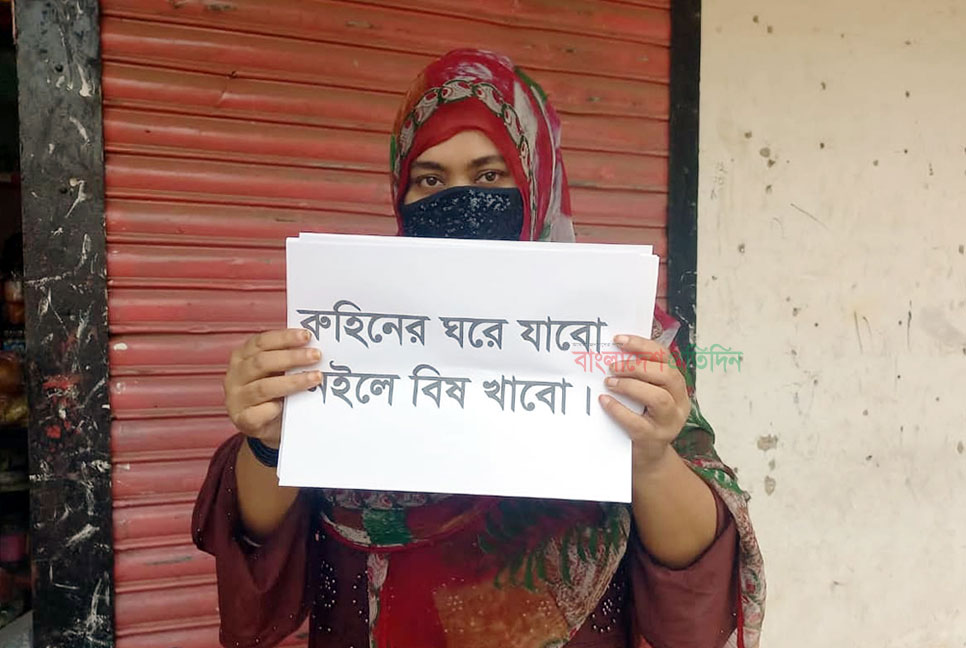 রুহিনের ঘরে যাবো
নইলে বিষ খাবো।
বাংলাদেশ প্রতিদিন